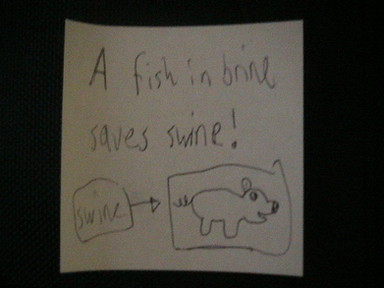 A fish in brine
saves swine!
swine